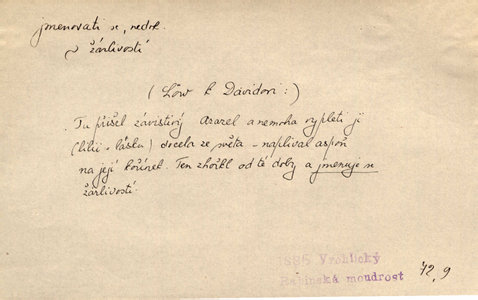 jmenovati se, nedok.
v žárlivosti
( Löw k Davidovi : )
Tu přišel závistivý Azazel a nemoha vypleti ji
(lilii - lásku) docela ze světa - naplival aspoň
na její kořínek. Ten zhořkl od té doby a jmenuje se
žárlivostí.
1886 Vrchlický
Rabínská moudrost
72, 9